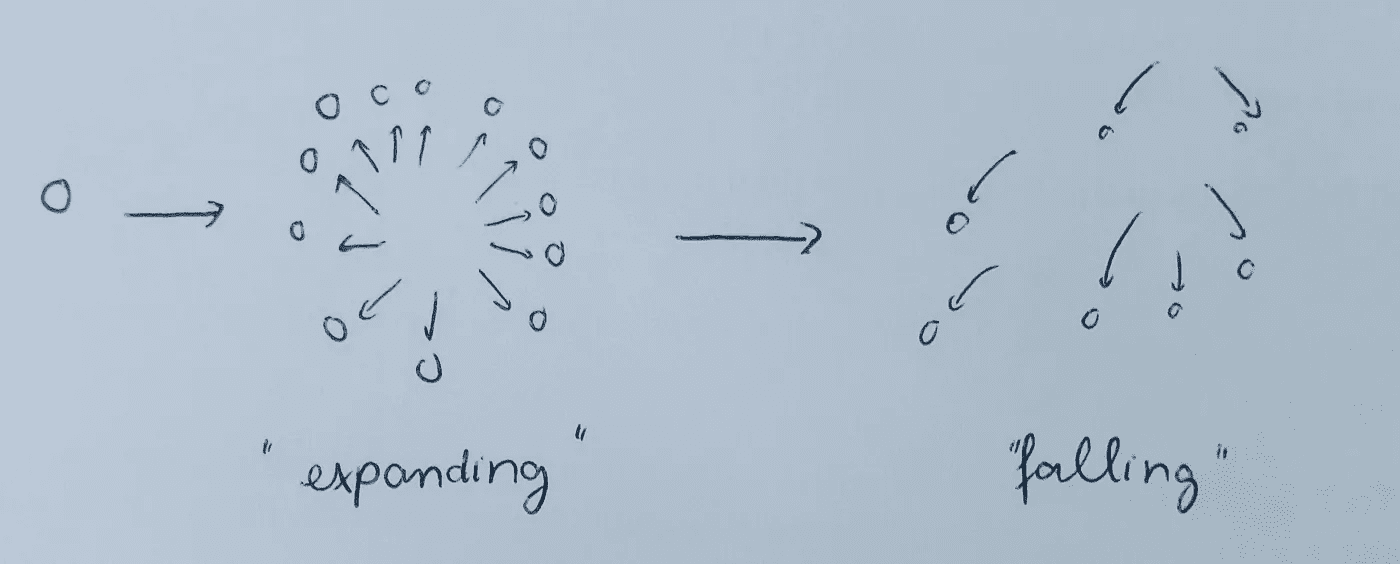 "expanding"
"falling"